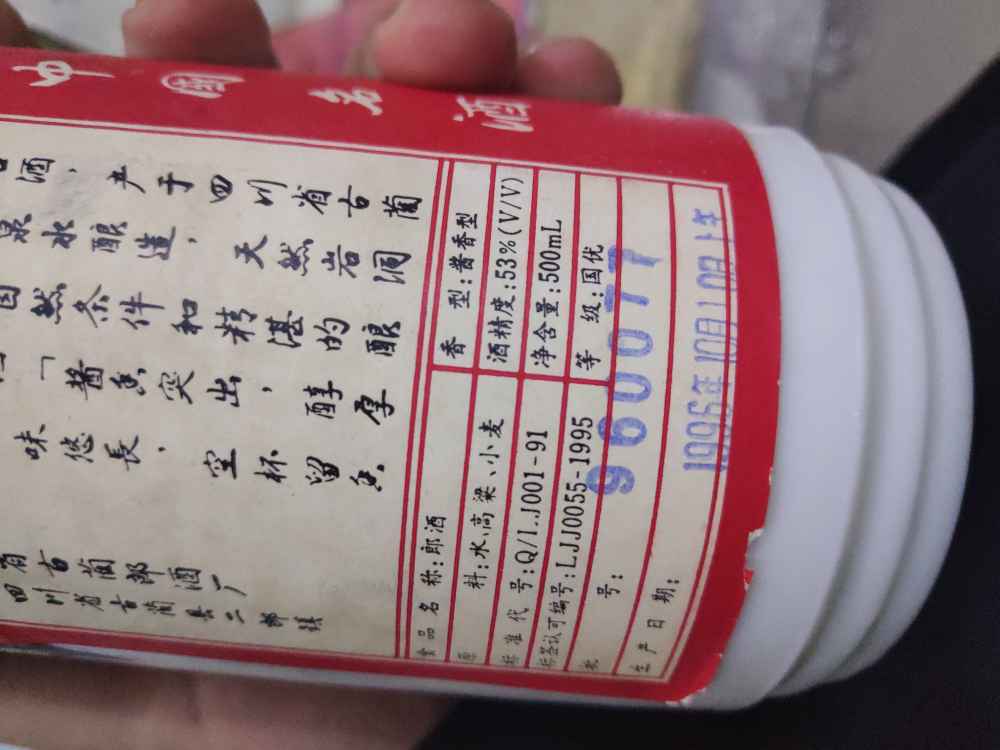 中国名酒
酒，产于四川省古蔺
泉水酿造，天然岩洞
然条件和精湛的酿
「酱香突出，醇厚
味悠長，空杯留香
省古蔺郎酒厂
四川省古蔺县二郎镇
食品名称:郎酒 香型:酱香型
原料:水、高粱、小麦 酒精度:53%(V/V)
标准代号:Q/LJ001-91 净含量:500mL
标签认可编号:LJJ0055-1995 等级:国优
批号: 960077
生产日期: 1996年10月10日上午